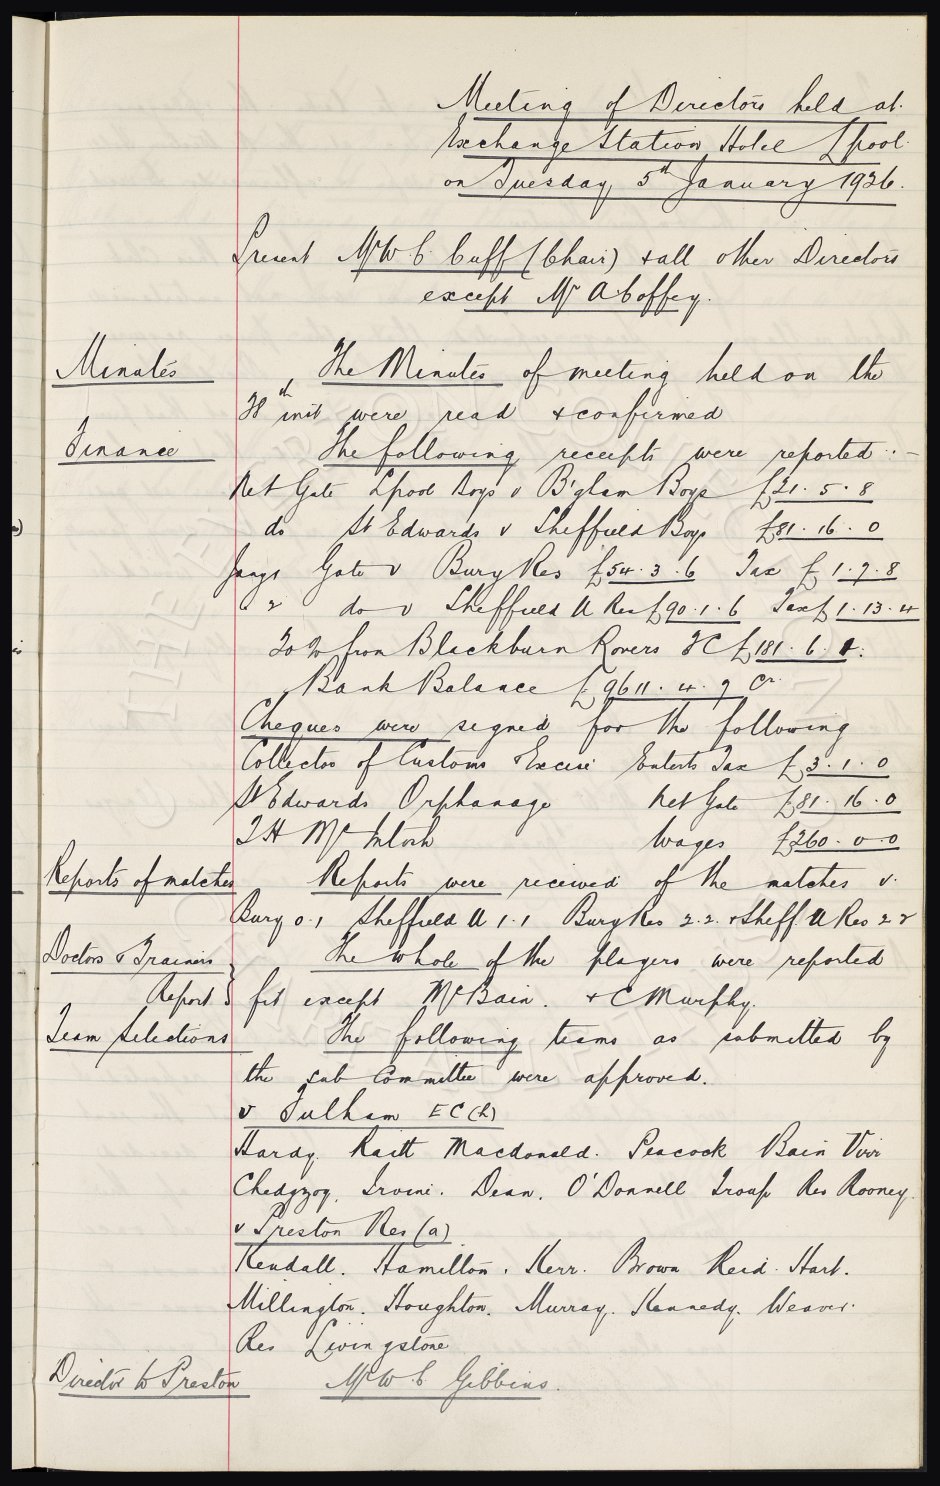 Meeting of Directors held at
Exchange Station Hotel Lpool
on Tuesday, 5th January 1926.
Present Mr W. C. Cuff (Chair) + all other Directors
except Mr A Coffey.
Minutes The Minutes of meeting held on the
28th inst were read + confirmed
Finance The following receipts were reported :-
Net Gate Lpool Boys v B'gham Boys £21. 5. 8
do St Edwards v Sheffield Boys £81. 16. 0
Gate v Bury Res £54. 3. 6 Tax £1. 7. 8
do v Sheffield U Res £90. 1. 6 Tax £1. 13. 4
20% from Blackburn Rovers FC £181. 6. 1.
Bank Balance £9611. 4. 9 Cr
Cheques were signed for the following
Collector of Customs + Excise Enterts Tax £3. 1. 0
St Edwards Orphanage Net Gate £81. 16. 0
T H McIntosh Wages £260. 0. 0
Reports of matches Reports were received of the matches v.
Bury 0.1 Sheffield U 1.1 Bury Res 2.2. + Sheff. U Res 2 2
Doctors & Trainers The whole of the players were reported
Report } fit except McBain. + C Murphy.
Team Selections The following teams as submitted by
the sub Committee were approved.
v Fulham EC (h)
Hardy. Raitt Macdonald. Peacock Bain Virr
Chedgzoy. Irvine. Dean. O'Donnell Troup Res Rooney.
v Preston Res (a)
Kendall. Hamilton. Kerr. Brown Reid. Hart.
Millington. Houghton. Murray. Kennedy. Weaver.
Res Livingstone
Director to Preston Mr W. C. Gibbins.